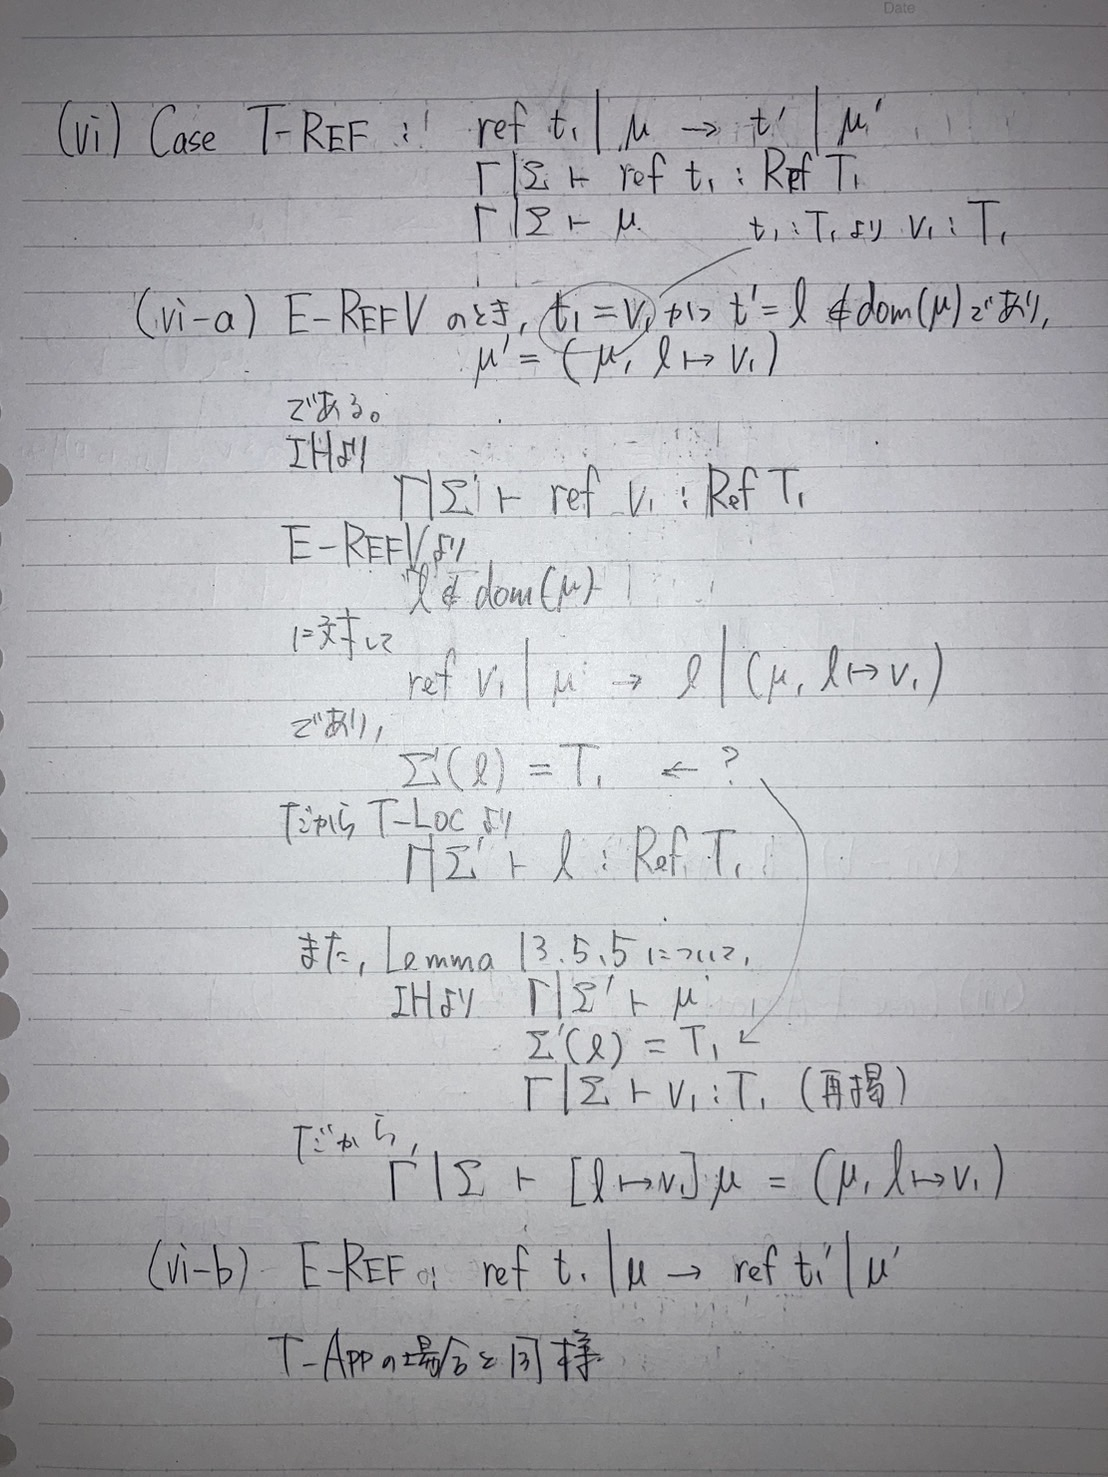 Date
(vi) Case T-REF : ref t₁ | μ → t' | μ'
Γ|Σ ⊢ ref t₁ : Ref T₁
Γ|Σ ⊢ μ
t₁ : T₁ より v₁ : T₁
(vi-a) E-REFV のとき, t₁ = v₁ かつ t' = l ∉ dom(μ) であり,
μ' = (μ, l ↦ v₁)
である。
IHより
Γ|Σ' ⊢ ref v₁ : Ref T₁
E-REFVより
l ∉ dom(μ)
に対して
ref v₁ | μ → l | (μ, l ↦ v₁)
であり,
Σ'(l) = T₁ ← ?
だから T-LOC より
Γ|Σ' ⊢ l : Ref T₁
また, Lemma 13.5.5 について,
IHより Γ|Σ' ⊢ μ
Σ'(l) = T₁
Γ|Σ ⊢ v₁ : T₁ (再掲)
だから,
Γ|Σ ⊢ [l ↦ v₁]μ = (μ, l ↦ v₁)
(vi-b) E-REF : ref t₁ | μ → ref t₁' | μ'
T-APPの場合と同様